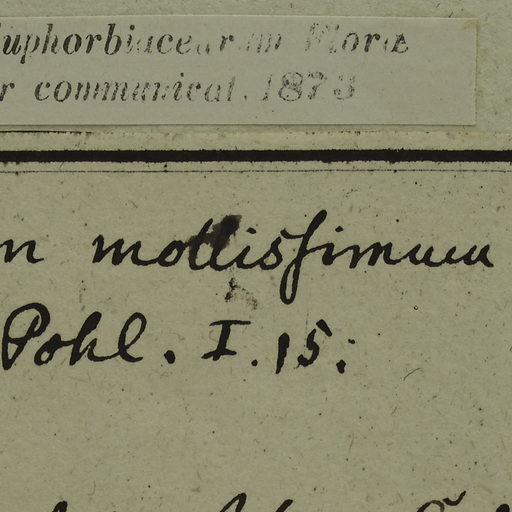 uphorbiacearum Floræ
r communicat. 1873
n mollissimum
Pohl. I. 15.